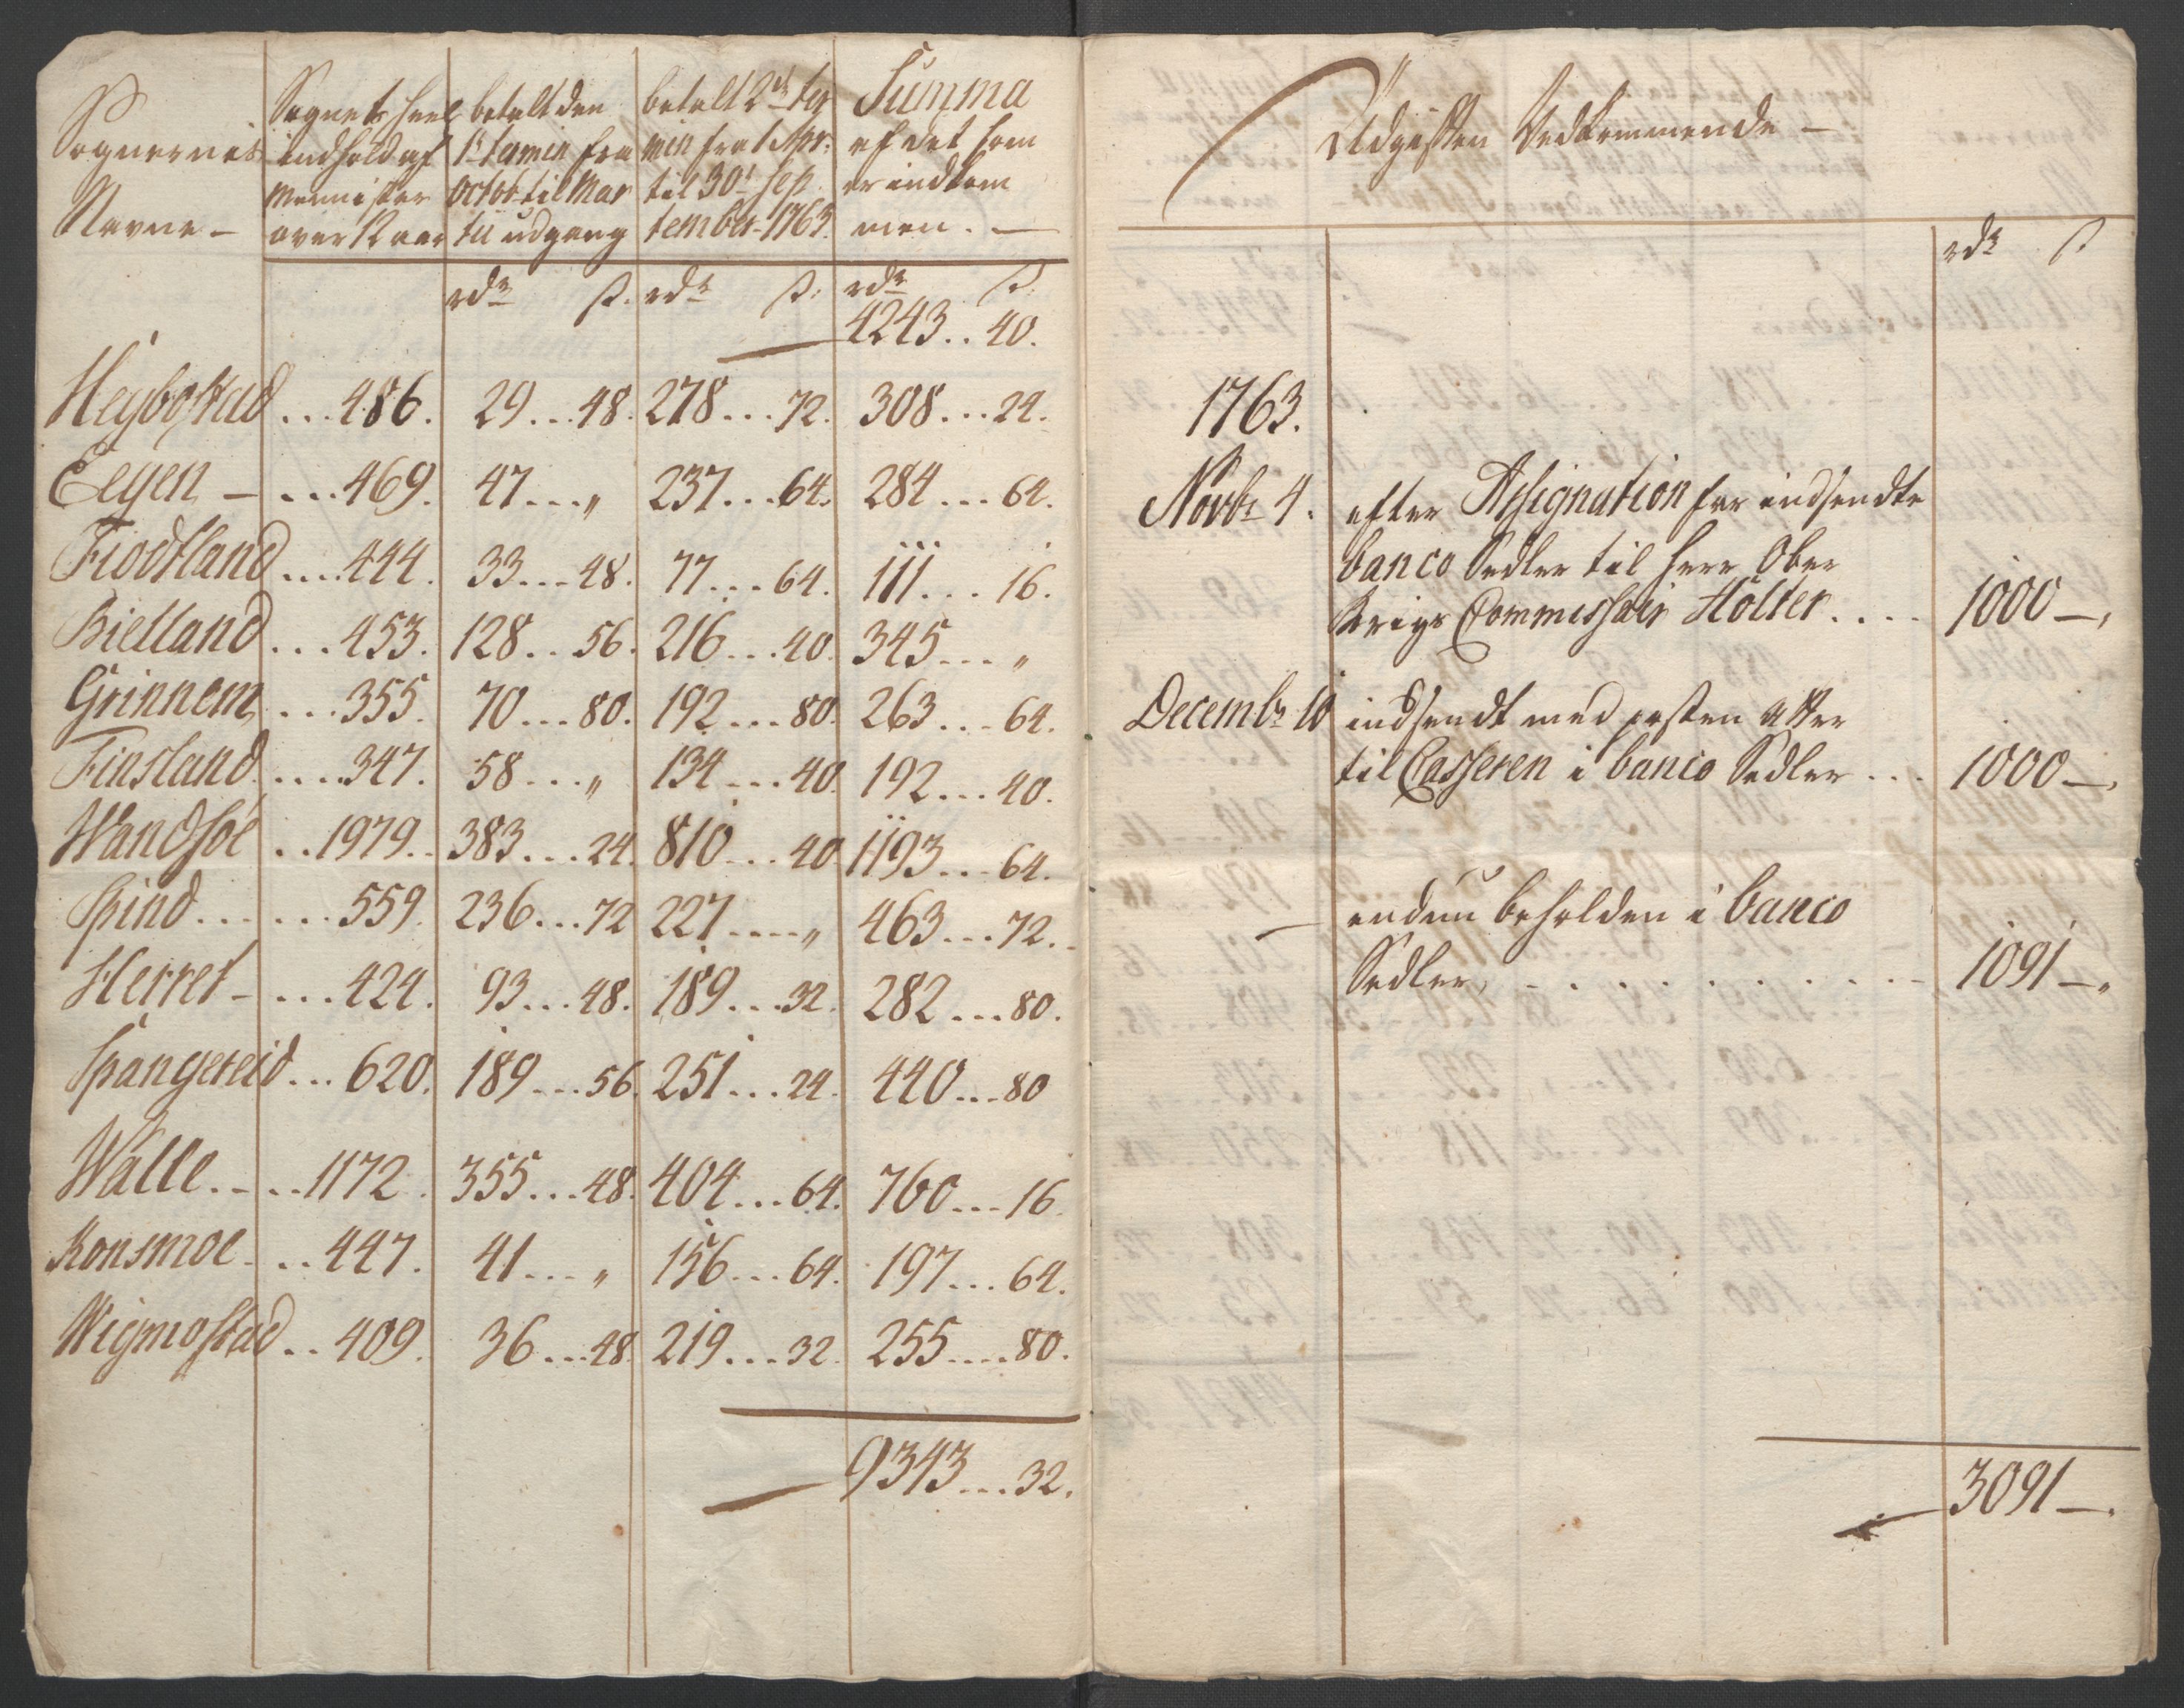 Sognernis Navne —
Sognets heele indhold af Mennisker over 12 aar
betalt den 1ste termin fra Octob: til Mar tii udgang
betalt 2den ter min fra 1 Apr: til 30te Sep tember 1763.
Summa af det som er indkom men. —
rdr ß. rdr ß: rdr ß.
4243 .. 40.
Heybostad ... 486. 29 ... 48. 278 ... 72. 308 ... 24.
Eegen — ... 469. 47 ... „ 237 ... 64. 284 ... 64.
Fiodtland .... 444. 33 ... 48. 77 ... 64. 111 ... 16.
Bielland ... 453. 128 .. 56. 216 ... 40. 345 ... „
Grinnem ... 355. 70 ... 80. 192 ... 80. 263 ... 64.
Finsland .... 347. 58 ... „ 134 ... 40. 192 ... 40.
Wandsöe .. 1979.. 383 ... 24. 810 ... 40 1193 ... 64.
Spind ...... 559. 236 ... 72 227 .... „ 463 ... 72.
Herret - ... 424. 93 ... 48. 189 ... 32. 282 ... 80.
Spangereid ... 620. 189 ... 56. 251 ... 24. 440 ... 80
Walle .... 1172. 355 ... 48. 404 ... 64. 760 ... 16.
Konsmoe ... 447. 41 ... „ 156 ... 64. 197 ... 64.
Wigmostad .. 409. 36 ... 48. 219 ... 32. 255 .... 80.
9343 ... 32.
Udgiften Vedkommende —
rdr ß
1763.
Novbr 4. efter Assignation for indsendte
banco Sedler til Herr Ober
Krigs Commissair Holter .... 1000 —,
Decembr 10 indsendt med posten atter
til Casseren i banco Sedler ... 1000 —,
— endnu beholden i banco
Sedler, .......... 1091 —„
3091 —.